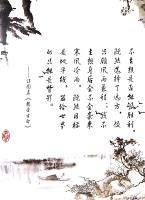 不去想是否能够成功，
既然选择了远方，便
只顾风雨兼程。我不
去想身后会不会袭来
寒风冷雨，既然目标
是地平线，留给世界
的只能是背影。
——汪国真《热爱生命》